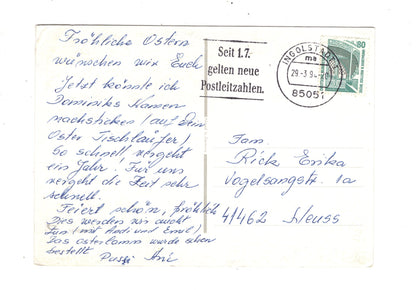 Fröhliche Ostern
wünschen wir Euch
Jetzt könnte ich
Dominiks Namen
nachsticken! auf Dein
Oster Tischläufer!
So schnell vergeht
ein Jahr! Für uns
vergeht die Zeit sehr
schnell.
Feiert schön, fröhlich
Dies werden wir auch
tun! mit Andi und Emil!
Das Osterlamm wurde schon
bestellt
Seit 1.7.
gelten neue
Postleitzahlen.
INGOLSTADT
ma
29.-3.9
85051
80
Fam.
Rick Erika
Vogelsangstr. 1a
41462 Neuss